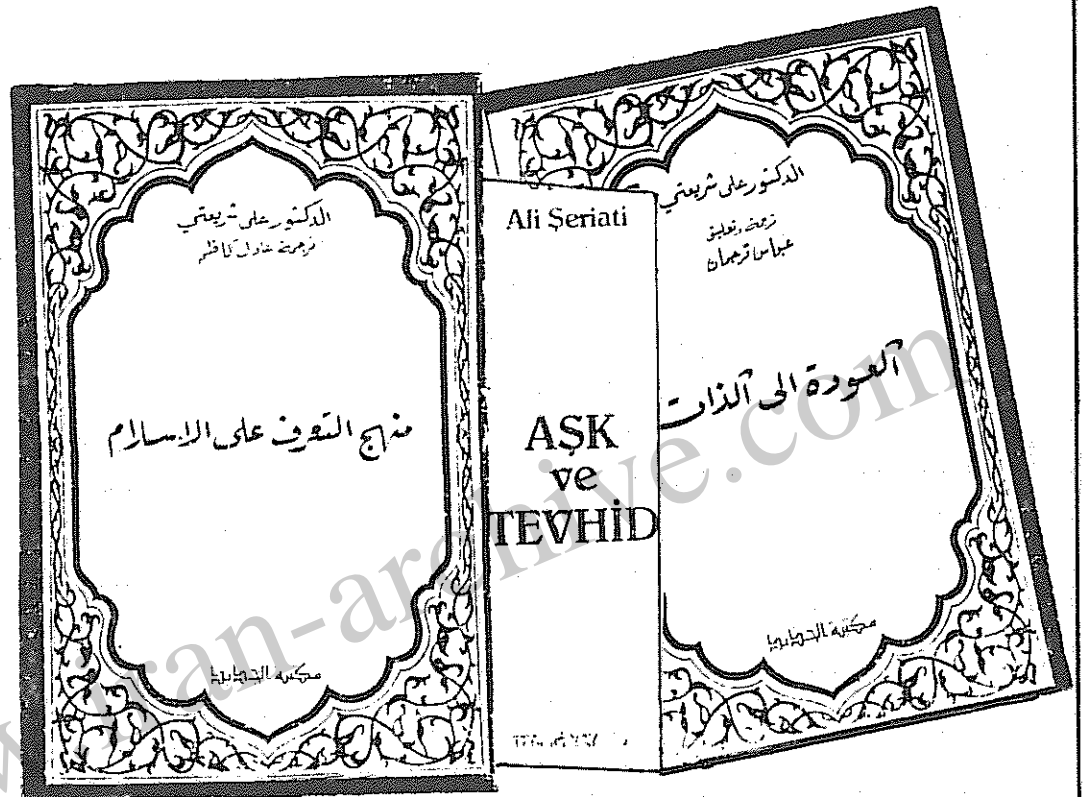 الدكتور على شريعتي
ترجمة عادل كاظم
منهج التعرف على الاسلام
مكتبة
Ali Şeriati
AŞK
ve
TEVHİD
الدكتور على شريعتي
ترجمة وتعليق
عباس ترجمان
العودة الى الذات
مكتبة
iran-archive.com